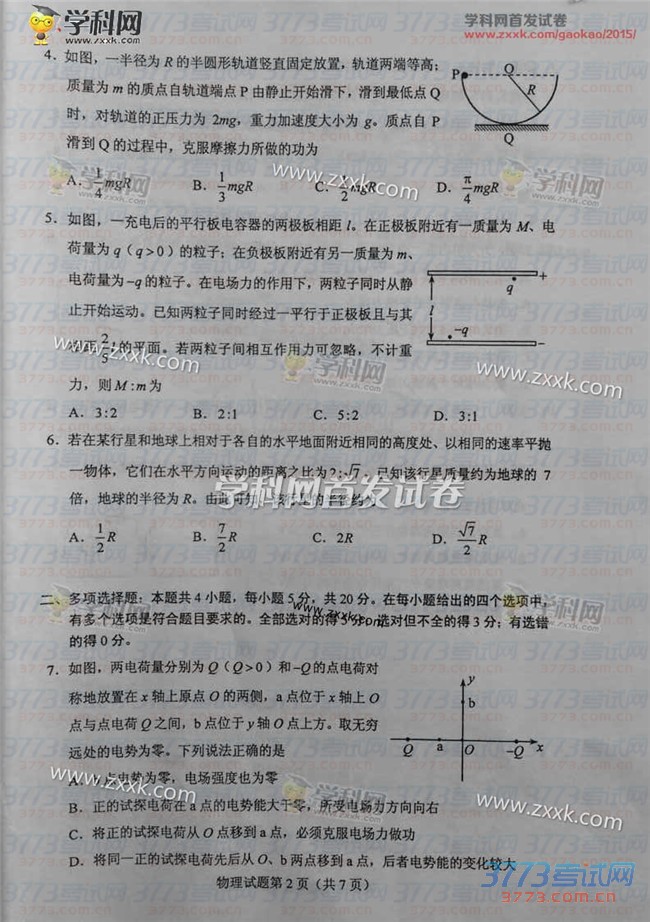 学科网
www.zxxk.com
学科网首发试卷
www.zxxk.com/gaokao/2015/
4. 如图，一半径为 R 的半圆形轨道竖直固定放置，轨道两端等高；
质量为 m 的质点自轨道端点 P 由静止开始滑下，滑到最低点 Q
时，对轨道的正压力为 2mg，重力加速度大小为 g。质点自 P
滑到 Q 的过程中，克服摩擦力所做的功为
P O R Q
A. 1/4 mgR B. 1/3 mgR C. 1/2 mgR D. π/4 mgR
5. 如图，一充电后的平行板电容器的两极板相距 l。在正极板附近有一质量为 M、电
荷量为 q（q>0）的粒子；在负极板附近有另一质量为 m、
电荷量为 -q 的粒子。在电场力的作用下，两粒子同时从静
止开始运动。已知两粒子同时经过一平行于正极板且与其
2/5 l 的平面。若两粒子间相互作用力可忽略，不计重
力，则 M:m 为
+ q l -q −
A. 3:2 B. 2:1 C. 5:2 D. 3:1
6. 若在某行星和地球上相对于各自的水平地面附近相同的高度处、以相同的速率平抛
一物体，它们在水平方向运动的距离之比为 2:√7，已知该行星质量约为地球的 7
倍，地球的半径为 R。由此可知，该行星的半径约为
A. 1/2 R B. 7/2 R C. 2R D. √7/2 R
学科网首发试卷
二、多项选择题：本题共 4 小题，每小题 5 分，共 20 分。在每小题给出的四个选项中，
有多个选项是符合题目要求的。全部选对的得 5 分，选对但不全的得 3 分；有选错
的得 0 分。
7. 如图，两电荷量分别为 Q（Q>0）和 -Q 的点电荷对
称地放置在 x 轴上原点 O 的两侧，a 点位于 x 轴上 O
点与点电荷 Q 之间，b 点位于 y 轴 O 点上方。取无穷
远处的电势为零。下列说法正确的是
y b Q a O -Q x
A. 点电势为零，电场强度也为零
B. 正的试探电荷在 a 点的电势能大于零，所受电场力方向向右
C. 将正的试探电荷从 O 点移到 a 点，必须克服电场力做功
D. 将同一正的试探电荷先后从 O、b 两点移到 a 点，后者电势能的变化较大
物理试题第 2 页（共 7 页）
3773考试网
www.3773.com.cn